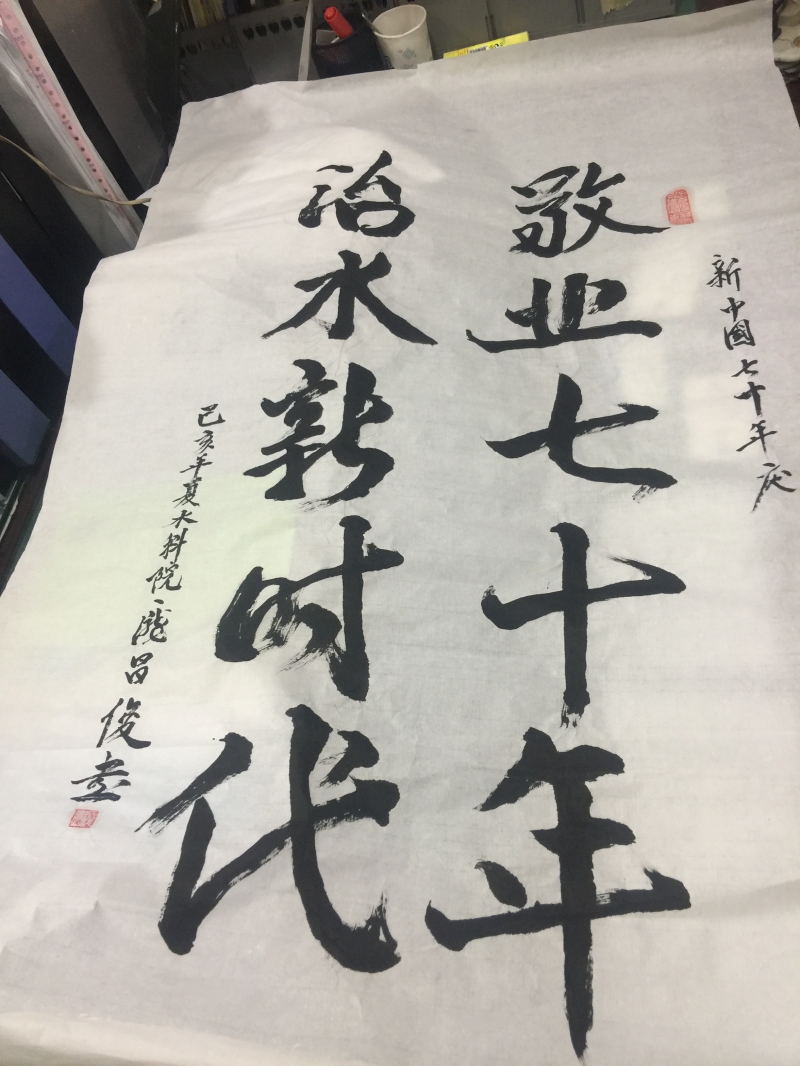 新中國七十年庆
敬业七十年
治水新时代
己亥年夏水科院庞昌俊书